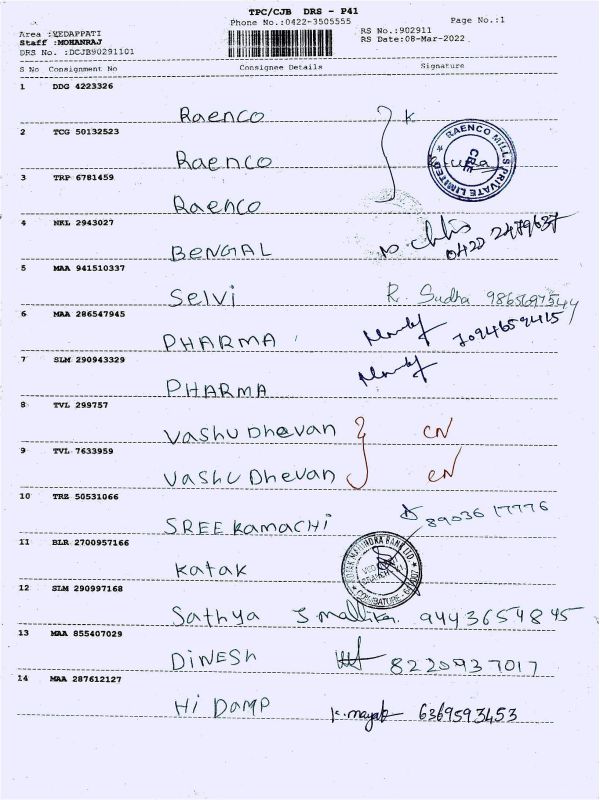 TPC/CJB DRS - P41
Phone No.:0422-3505555
Page No.:1
Area :VEDAPPATI
RS No.:902911
Staff :MOHANRAJ
RS Date:08-Mar-2022
DRS No. :DCJB90291101
S No Consignment No Consignee Details Signature
1 DDG 4223326
Raenco K
2 TCG 50132523
Raenco
RAENCO MILLS PRIVATE LIMITED
CBE
3 TRP 6781459
Raenco
4 NKL 2943027
BENGAL 0422 2479637
5 MAA 941510337
Selvi R. Sudha 9865697544
6 MAA 286547945
PHARMA 7094659415
7 SLM 290943329
PHARMA
8 TVL 299757
Vashu Dhevan CN
9 TVL 7633959
Vashu Dhevan CN
10 TRZ 50531066
SREE Kamachi 89036 17776
11 BLR 2700957166
Katak
KOTAK MAHINDRA BANK LTD.
COIMBATORE
12 SLM 290997168
Sathya J mallika 9443654845
13 MAA 855407029
DINESH 8220937017
14 MAA 287612127
Hi DAMP 6369593453